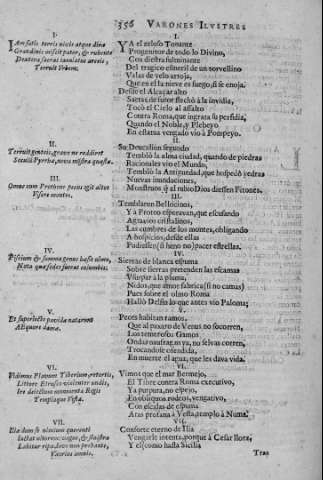 356 VARONES ILVSTRES
I.
Iam satis terris nivis atque diræ
Grandinis misit pater, & rubente
Dextera sacras iaculatus arces,
Terruit Vrbem.
I.
YA el zeloso Tonante
Progenitor de todo lo Divino,
Con diestra fulminante
Del tragico esmeril de un torvellino
Valas de yelo arroja,
Que en el la nieve es fuego, si se enoja.
Desde el Alcaçar alto
Saetas de furor flechò à la invidia,
Tocò el Cielo al assalto
Contra Roma, que ingrata su perfidia,
Quando el Noble, y Plebeyo
En estatua vengado viò à Pompeyo.
II.
Terruit gentes, grave ne rediret
Seculũ Pyrrhæ, nova mõstra questæ
II.
Su Deucalion segundo
Temblò la alma ciudad, quando de piedras
Racionales viò el Mundo,
Temblò la Antiguedad, que hospedò yedras
Nuevas inundaciones,
Monstruos q̃ al rubio Dios diessen Fitones.
III.
Omne cum Protheus pecus egit altos
Visere montes.
III.
Temblaron Bellocinos,
Ya Proteo esperavan, que escusando
Agravios cristalinos,
Las cumbres de los montes, obligando
A hospicios, desde ellas
Pudiessen (si heno no) pacer estrellas.
IV.
Piscium & summa genus hæsit ulmo,
Nota quæ sedes fuerat columbis.
IV.
Sierras de blanca espuma
Sobre sierras pretenden las escamas
Vsurpar à la pluma,
Nidos, que amor fabrica (si no camas)
Pues sobre el olmo Roma
Hallò Delfin lo que antes viò Paloma;
V.
Et superiecto pavidæ natarunt
Æquore damæ.
V.
Pezes habitan ramos,
Que al paxaro de Venus no socorren,
Los temerosos Gamos,
Ondas naufragan ya, no selvas corren,
Trocandose ofendida,
En muerte el agua, que les dava vida.
VI.
Vidimus flavum Tiberim, retortis,
Littore Etrusco violenter undis,
Ire deiectum monumenta Regis
Templaque Vestæ.
VI.
Vimos que el mar Bermejo,
El Tibre contra Roma executivo,
Ya purpura, no espejo,
En obliquos rodeos, vengativo,
Con escalas de espuma
Aras profana à Vesta, templo à Numa.
VII.
Iliæ dum se nimium querenti
Iactat ultorem: vagus, & sinistra
Labitur ripa, Iove non probante,
Vxorius amnis.
VII.
Consorte eterno de Ilia
Vengarle intenta, porque à Cesar llora,
Y escomo hasta Sicilia
Tras